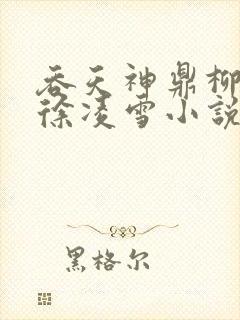 吞天神鼎柳
徐凌雪小說
黑格尔